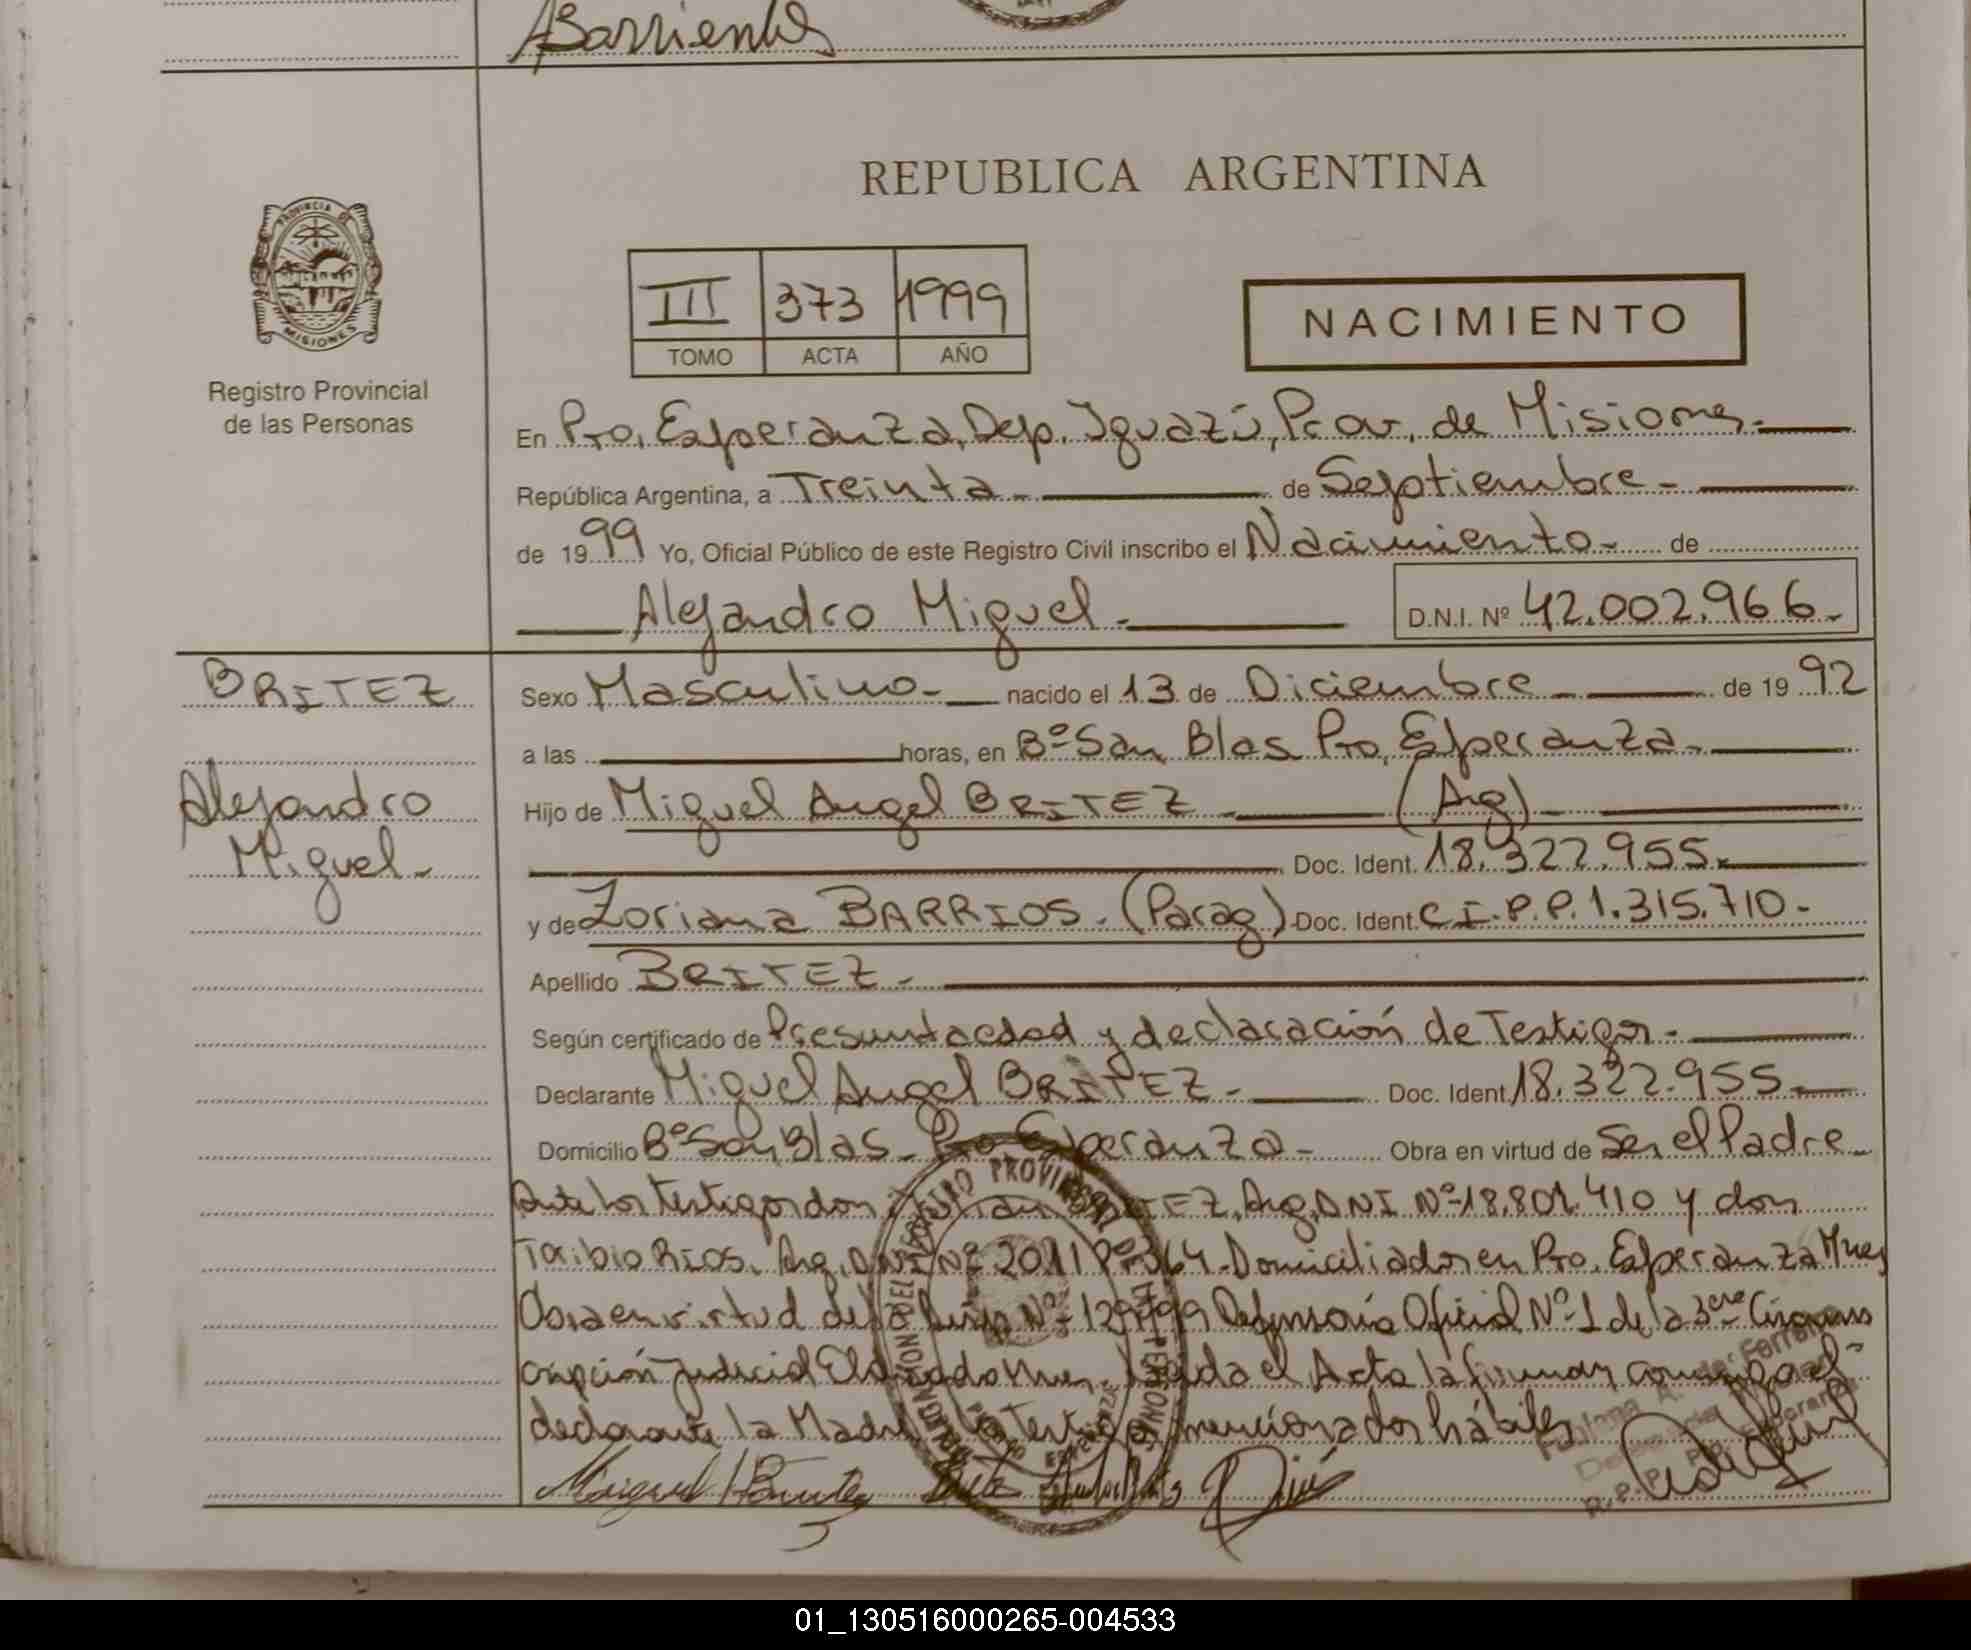 Barrientos
REPUBLICA ARGENTINA
PROVINCIA DE
MISIONES
Registro Provincial
de las Personas
III 373 1999
TOMO ACTA AÑO
NACIMIENTO
En Pto. Esperanza, Dep. Iguazú, Prov. de Misiones.
República Argentina, a Treinta de Septiembre
de 1999 Yo, Oficial Público de este Registro Civil inscribo el Nacimiento de
Alejandro Miguel
D.N.I. Nº 42.002.966
BRITEZ
Alejandro
Miguel
Sexo Masculino nacido el 13 de Diciembre de 1992
a las horas, en Bº San Blas Pto. Esperanza
Hijo de Miguel Angel BRITEZ (Arg)
Doc. Ident. 18.322.955
y de Zoriana BARRIOS. (Parag) Doc. Ident. C.I.P.P. 1.315.710
Apellido BRITEZ
Según certificado de Presunta edad y declaración de Testigos
Declarante Miguel Angel BRITEZ Doc. Ident. 18.322.955
Domicilio Bº San Blas Pto Esperanza Obra en virtud de Ser el Padre
Ante los testigos don Arg. DNI Nº 18.801.410 y don
Toribio Rios. Arg. DNI Nº Domiciliados en Pto. Esperanza Mnes
Obra en virtud de la Nº Defensoría Oficial Nº 1 de la 3era Circuns
cripción Judicial Eldorado Mnes. Leída el Acta la firman conmigo el
declarante la Madre testigos mencionados hábiles
REGISTRO PROVINCIAL
01_130516000265-004533